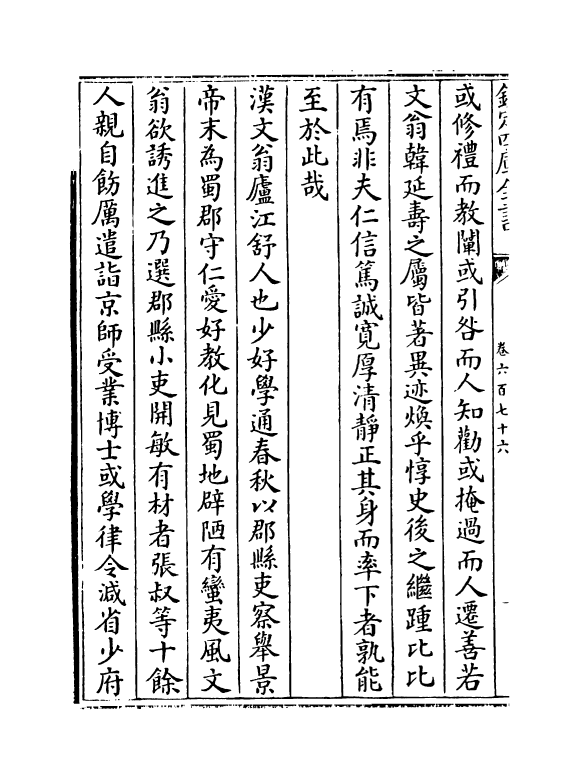 欽定四庫全書
卷六百七十六
或修禮而教闡或引咎而人知勸或掩過而人遷善若
文翁韓延壽之屬皆著異迹煥乎惇史後之繼踵比比
有焉非夫仁信篤誠寛厚清靜正其身而率下者孰能
至於此哉
漢文翁廬江舒人也少好學通春秋以郡縣吏察舉景
帝末為蜀郡守仁愛好教化見蜀地辟陋有蠻夷風文
翁欲誘進之乃選郡縣小吏開敏有材者張叔等十餘
人親自飭厲遣詣京師受業博士或學律令減省少府